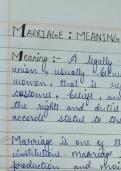 MARRIAGE : MEANING
Meaning :- A legally
union, usually betw
women, that is re
customs, belief, an
the right and duties
accords status to th
Marriage is one of th
institutional marriage
production and mai